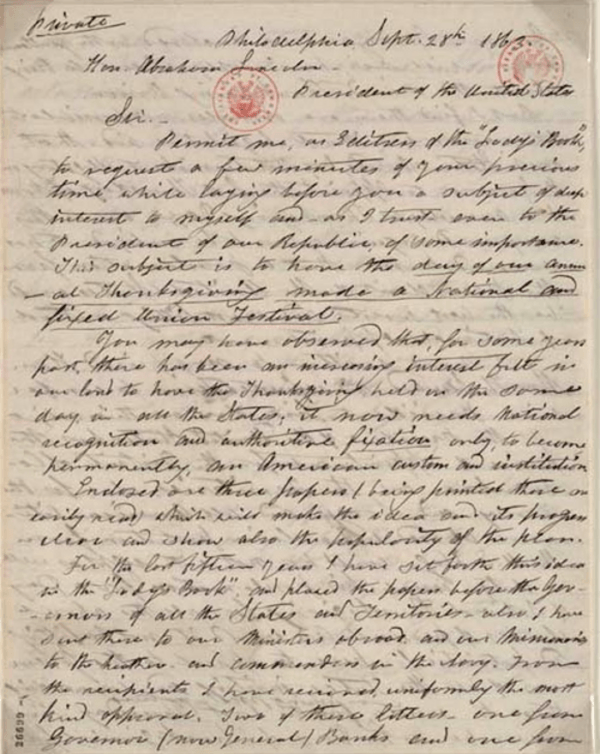 Private
Philadelphia Sept. 28th 1863.
Hon. Abraham Lincoln -
President of the United States
Sir. -
Permit me, as Editress of the "Lady's Book",
to request a few minutes of your precious
time, while laying before you a subject of deep
interest to myself and - as I trust - even to the
President of our Republic, of some importance.
This subject is to have the day of our annu
-al Thanksgiving made a National and
fixed Union Festival.
You may have observed that, for some years
past, there has been an increasing interest felt in
our land to have the Thanksgiving held on the same
day, in all the States; it now needs National
recognition and authoritive fixation, only, to become
permanently, an American custom and institution.
Enclosed are three papers (being printed these are
easily read) which will make the idea and its progress
clear and show also the popularity of the plan.
For the last fifteen years I have set forth this idea
in the "Lady's Book", and placed the papers before the Gov-
-ernors of all the States and Territories - also I have
sent these to our Ministers abroad, and our Missionaries
to the heathen - and commanders in the Navy. From
the recipients I have received, uniformly the most
kind approval. Two of these letters, one from
Governor (now General) Banks and one from
26699